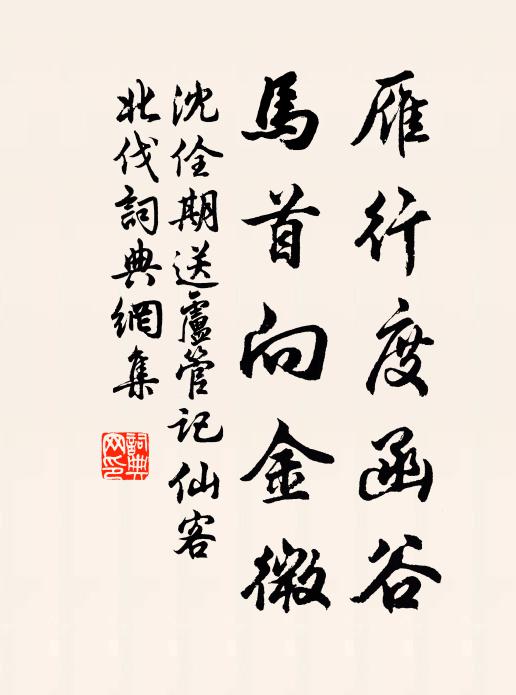 雁行度函谷
馬首向金微
沈佺期送盧管記仙客
北伐詞典網集
詞典网印